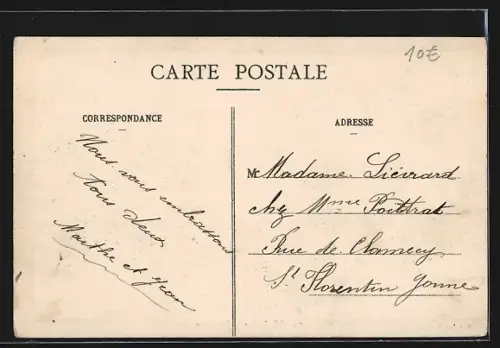 10€
CARTE POSTALE
CORRESPONDANCE
ADRESSE
Nous vous embrassons
tous deux
Marthe et Jean
M Madame Liévrard
chez Mme Poitdrat
Rue de Clamecy
St Florentin Yonne